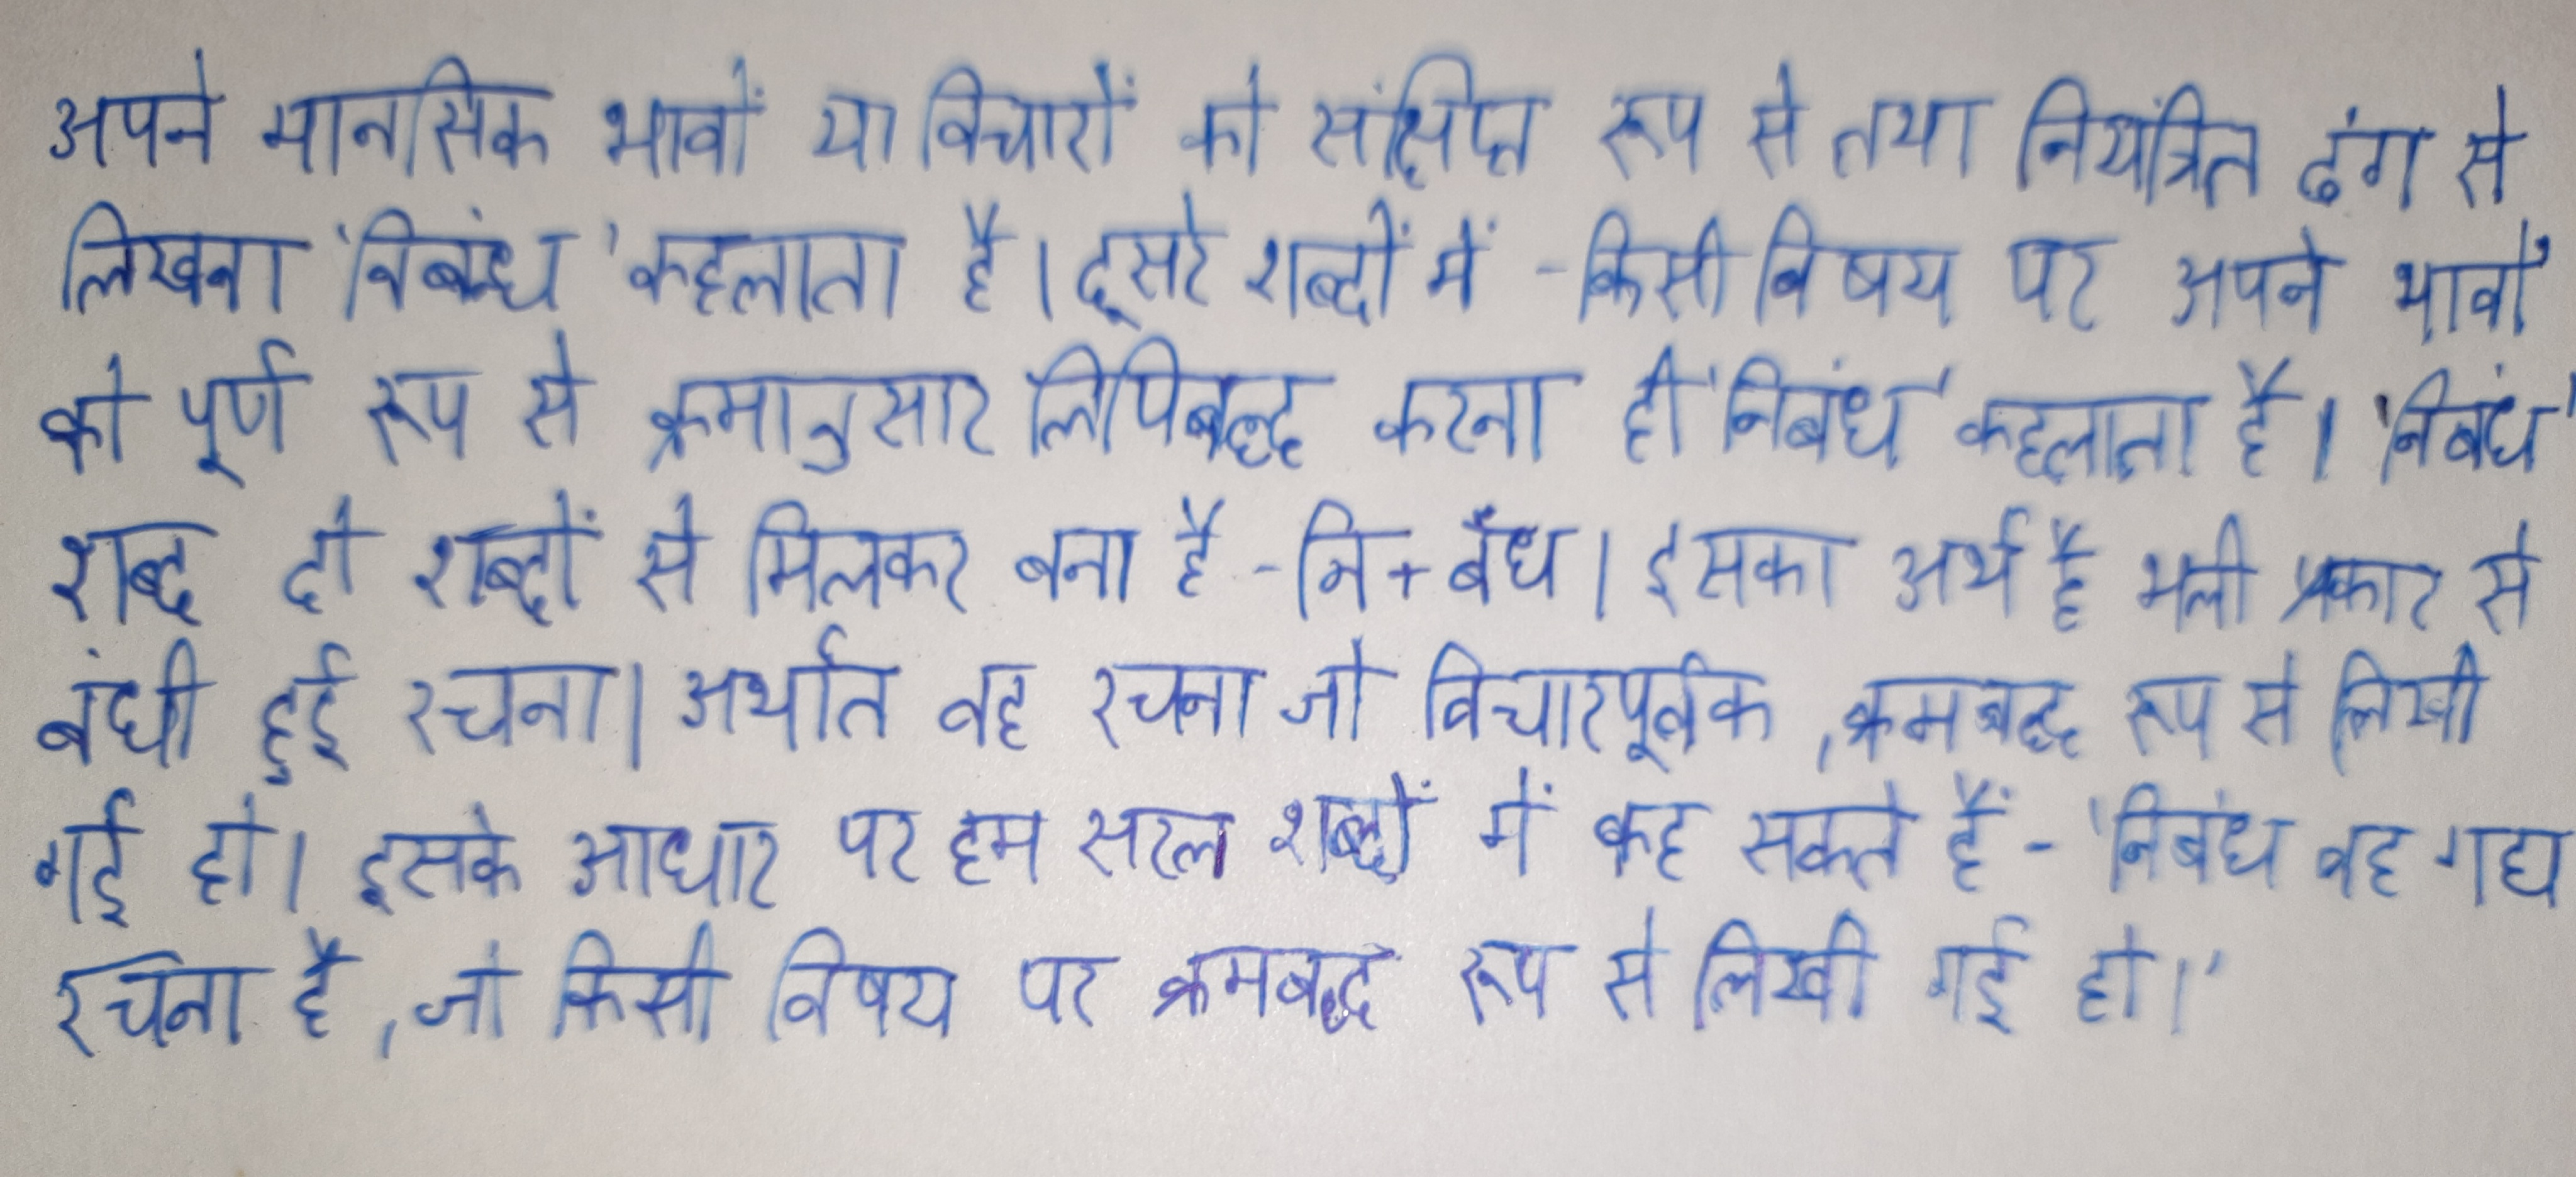 अपने मानसिक भावों या विचारों को संक्षिप्त रूप से तथा नियंत्रित ढंग से
लिखना 'निबंध' कहलाता है। दूसरे शब्दों में - किसी विषय पर अपने भावों
को पूर्ण रूप से क्रमानुसार लिपिबद्ध करना ही 'निबंध' कहलाता है। 'निबंध'
शब्द दो शब्दों से मिलकर बना है - नि + बंध। इसका अर्थ है भली प्रकार से
बंधी हुई रचना। अर्थात वह रचना जो विचारपूर्वक, क्रमबद्ध रूप से लिखी
गई हो। इसके आधार पर हम सरल शब्दों में कह सकते हैं - 'निबंध वह गद्य
रचना है, जो किसी विषय पर क्रमबद्ध रूप से लिखी गई हो।'